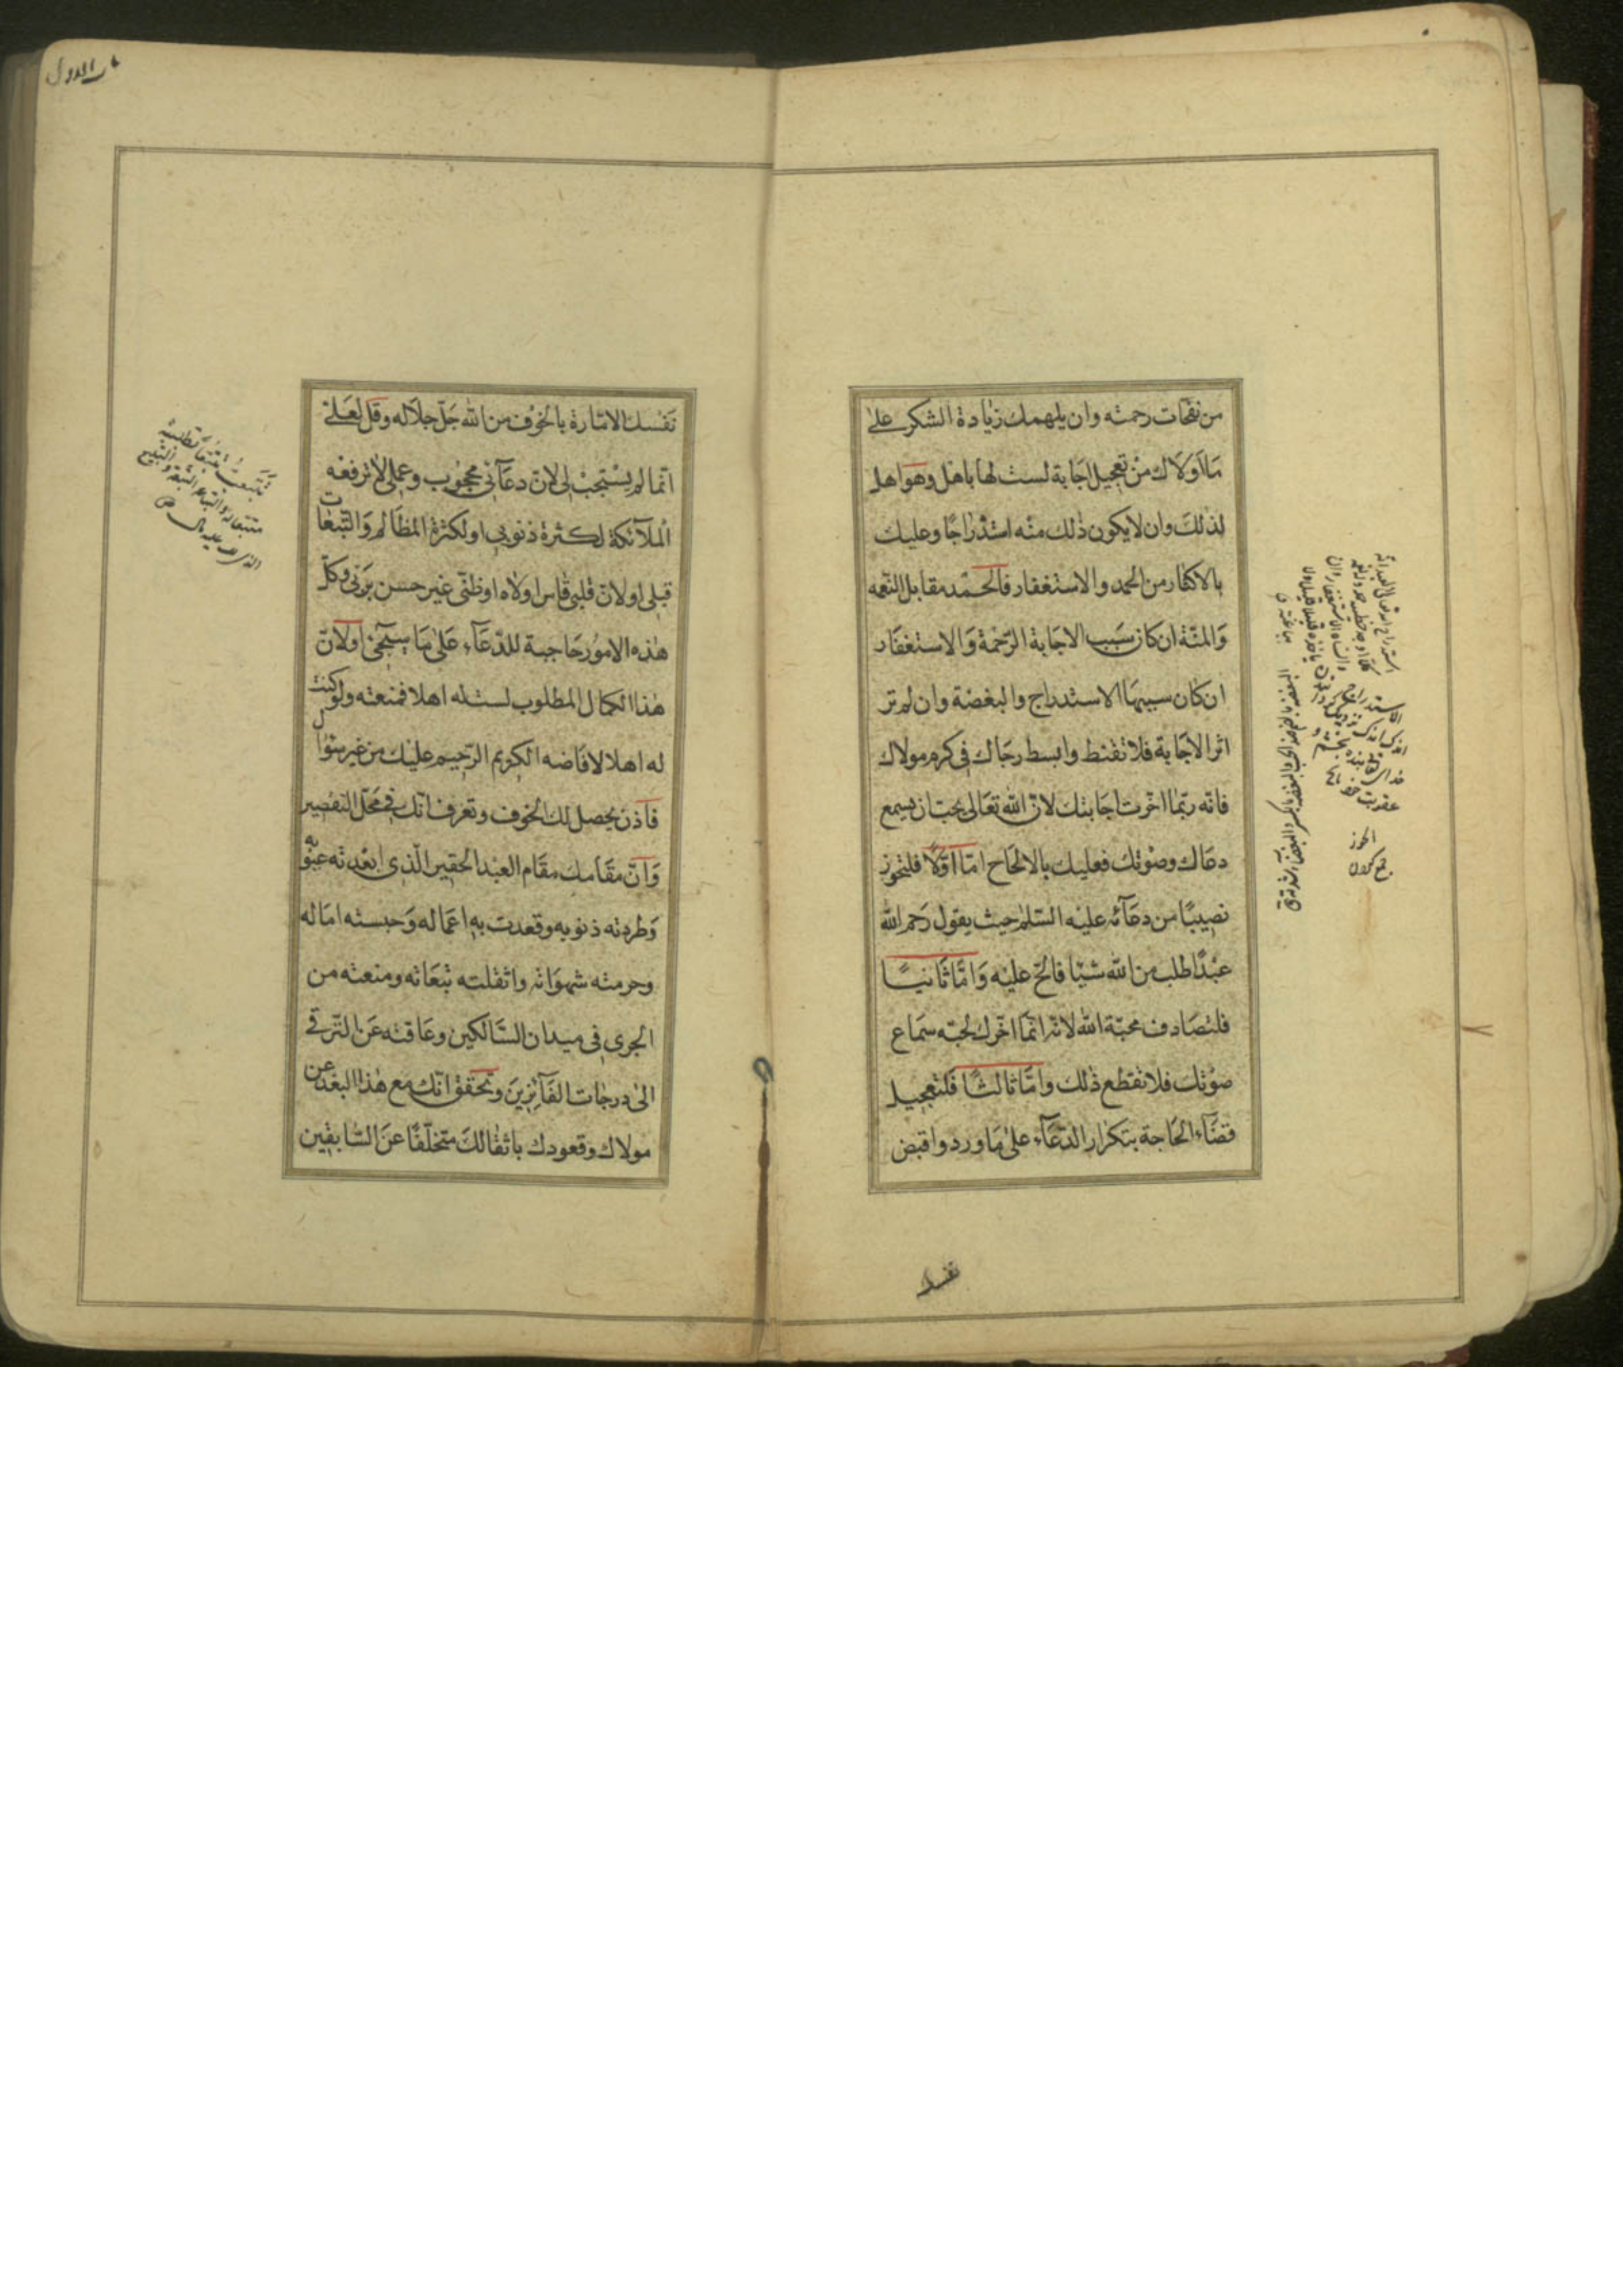 من نفحات رحمته وان يلهمك زيادة الشكر على
ما اولاك من تعجيل اجابة لست لها باهل وهو اهل
لذلك وان لا يكون ذلك منه استدراجا وعليك
بالاكثار من الحمد والاستغفار فالحمد مقابل النعمه
والمنّة ان كان سبب الاجابة الرّحمة والاستغفار
ان كان سببها الاستدراج والبغضة وان لم تر
اثر الاجابة فلا تقنط وابسط رجاك في كرم مولاك
فانّه ربّما اخّرت اجابتك لانّ الله تعالى يحبّ ان يسمع
دعاك وصوتك فعليك بالالحاح امّا اوّلا فلتحوز
نصيبًا من دعآئه عليه السّلم حيث يقول رحم الله
عبدًا طلب من الله شيئا فالحّ عليه وامّا ثانيًا
فلتصادف محبّة الله لانّه انّما اخّرك لحبّه سماع
صوتك فلا تقطع ذلك وامّا ثالثًا فلتعجيل
قضآء الحاجة بتكرار الدّعآء على ما ورد واقبض
الاستدراج
الحوز
جمع كردن
نفسك الامّارة بالخوف من الله جلّ جلاله وقل لعلّي
انّما لم يستجب لي لانّ دعآئي محجوب وعملي لا ترفعه
الملآئكة لكثرة ذنوبي او لكثرة المظالم والتّبعات
قبلي او لانّ قلبي قاس او لاه او ظنّي غير حسن بربّي وكلّ
هذه الامور حاجبة للدّعآء على ما سيجئ او لانّ
هذا الكمال المطلوب لست له اهلا فمنعته ولو كنت
له اهلا لافاضه الكريم الرّحيم عليك من غير سؤال
فاذن يحصل لك الخوف وتعرف انّك في محلّ التقصير
وانّ مقامك مقام العبد الحقير الّذي ابعدته عيوبه
وطردته ذنوبه وقعدت به اعماله وحبسته اماله
وحرمته شهواته واثقلته تبعاته ومنعته من
الجري في ميدان السّالكين وعاقته عن التّرقّي
الى درجات الفآئزين وتحقّق انّك مع هذا البعد عن
مولاك وقعودك باثقالك متخلّفًا عن السّابقين